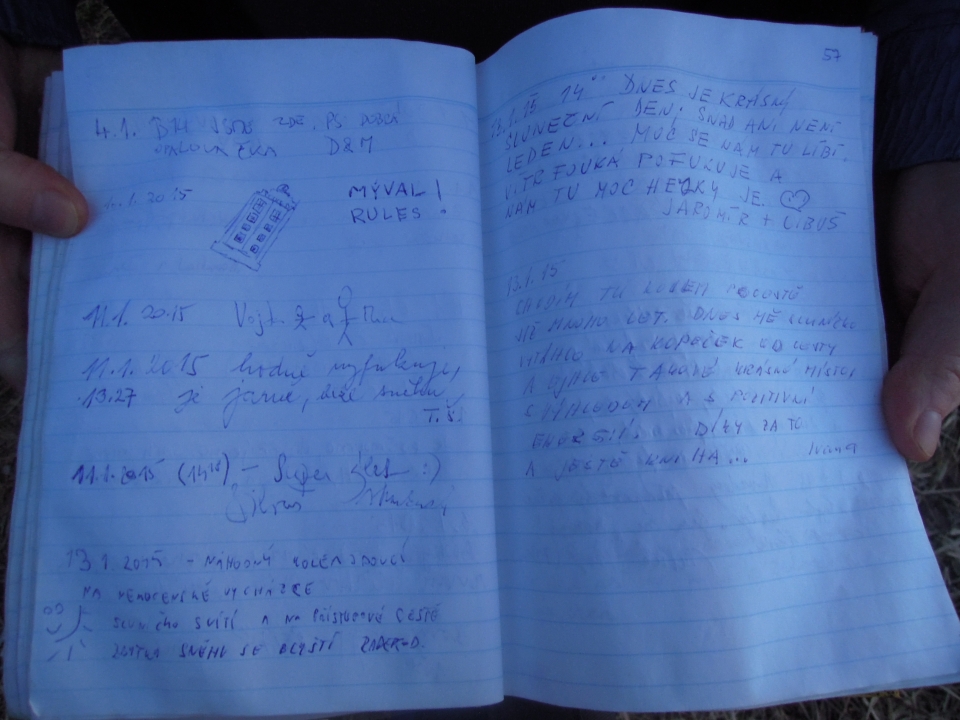 4.1. BYLI JSME ZDE. PS: DOBRÁ
OMALOVÁNKA D&M
4.1.2015
MÝVAL!
RULES!
11.1.2015 Vojt. a
11.1.2015 hodně vyfukuje,
13.27 je jarně, bez sněhu
T.Š.
11.1.2015 - Super :)
13.1.2015 - NÁHODNÝ KOLEMJDOUCÍ
NA NEMOCENSKÉ VYCHÁZCE
SLUNÍČKO SVÍTÍ A NA PŘÍSTUPOVÉ CESTĚ
ZBYTKU SNĚHU SE DRŽÍ
57
1.15 14 DNES JE KRÁSNÝ
SLUNEČNÍ DEN. SNAD ANI NENÍ
LEDEN... MOC SE NÁM TU LÍBÍ.
VÍTR FOUKÁ POFUKUJE A
NÁM TU MOC HEZKY JE.
JAROMÍR + LIBUŠ
13.1.15
CHODÍM TU KOLEM
UŽ MNOHO LET. DNES MĚ SLUNÍČKO
VYTÁHLO NA KOPEČEK OD CESTY
A EJHLE TAKOVÉ KRÁSNÉ MÍSTO,
S VÝHLEDEM A S POZITIVNÍ
ENERGIÍ. DÍKY ZA TO
A JEŠTĚ KNIHA... Ivana